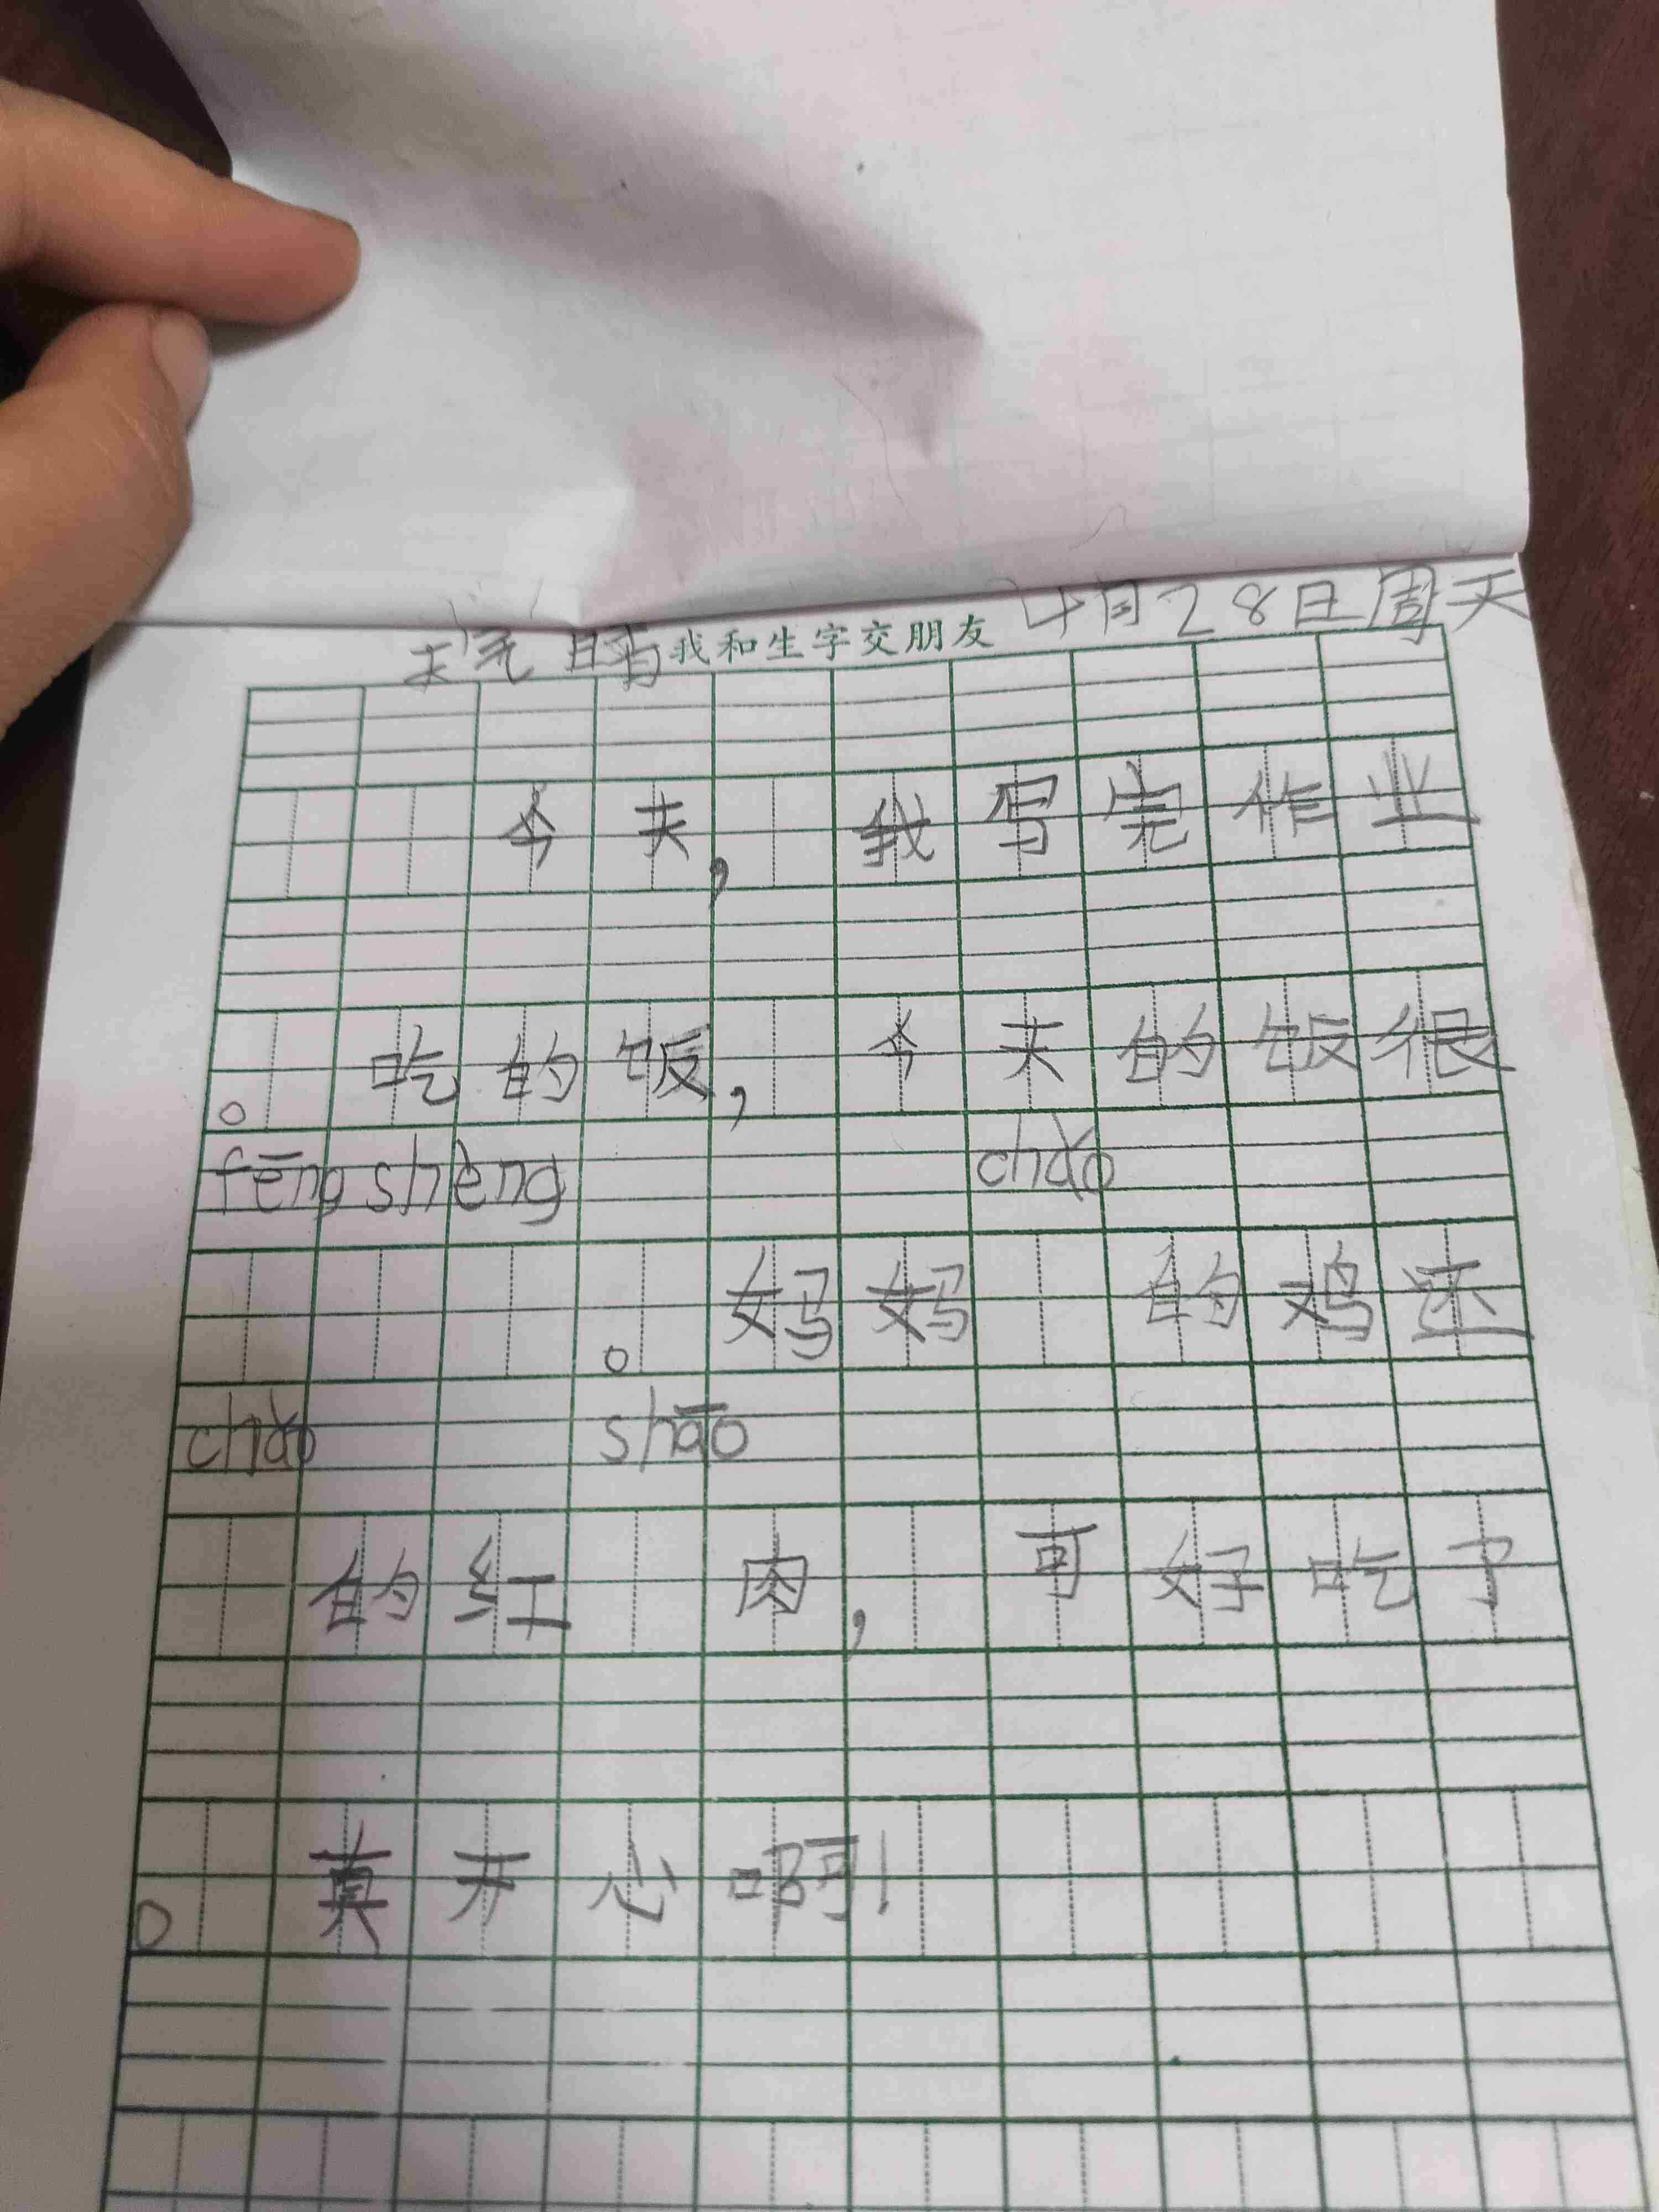 4月28日周天
天气晴 我和生字交朋友
今天，我写完作业
。吃的饭，今天的饭很
fēng shèng chǎo
。妈妈 的鸡还
chǎo shāo
的红 肉，可好吃了
。真开心啊！